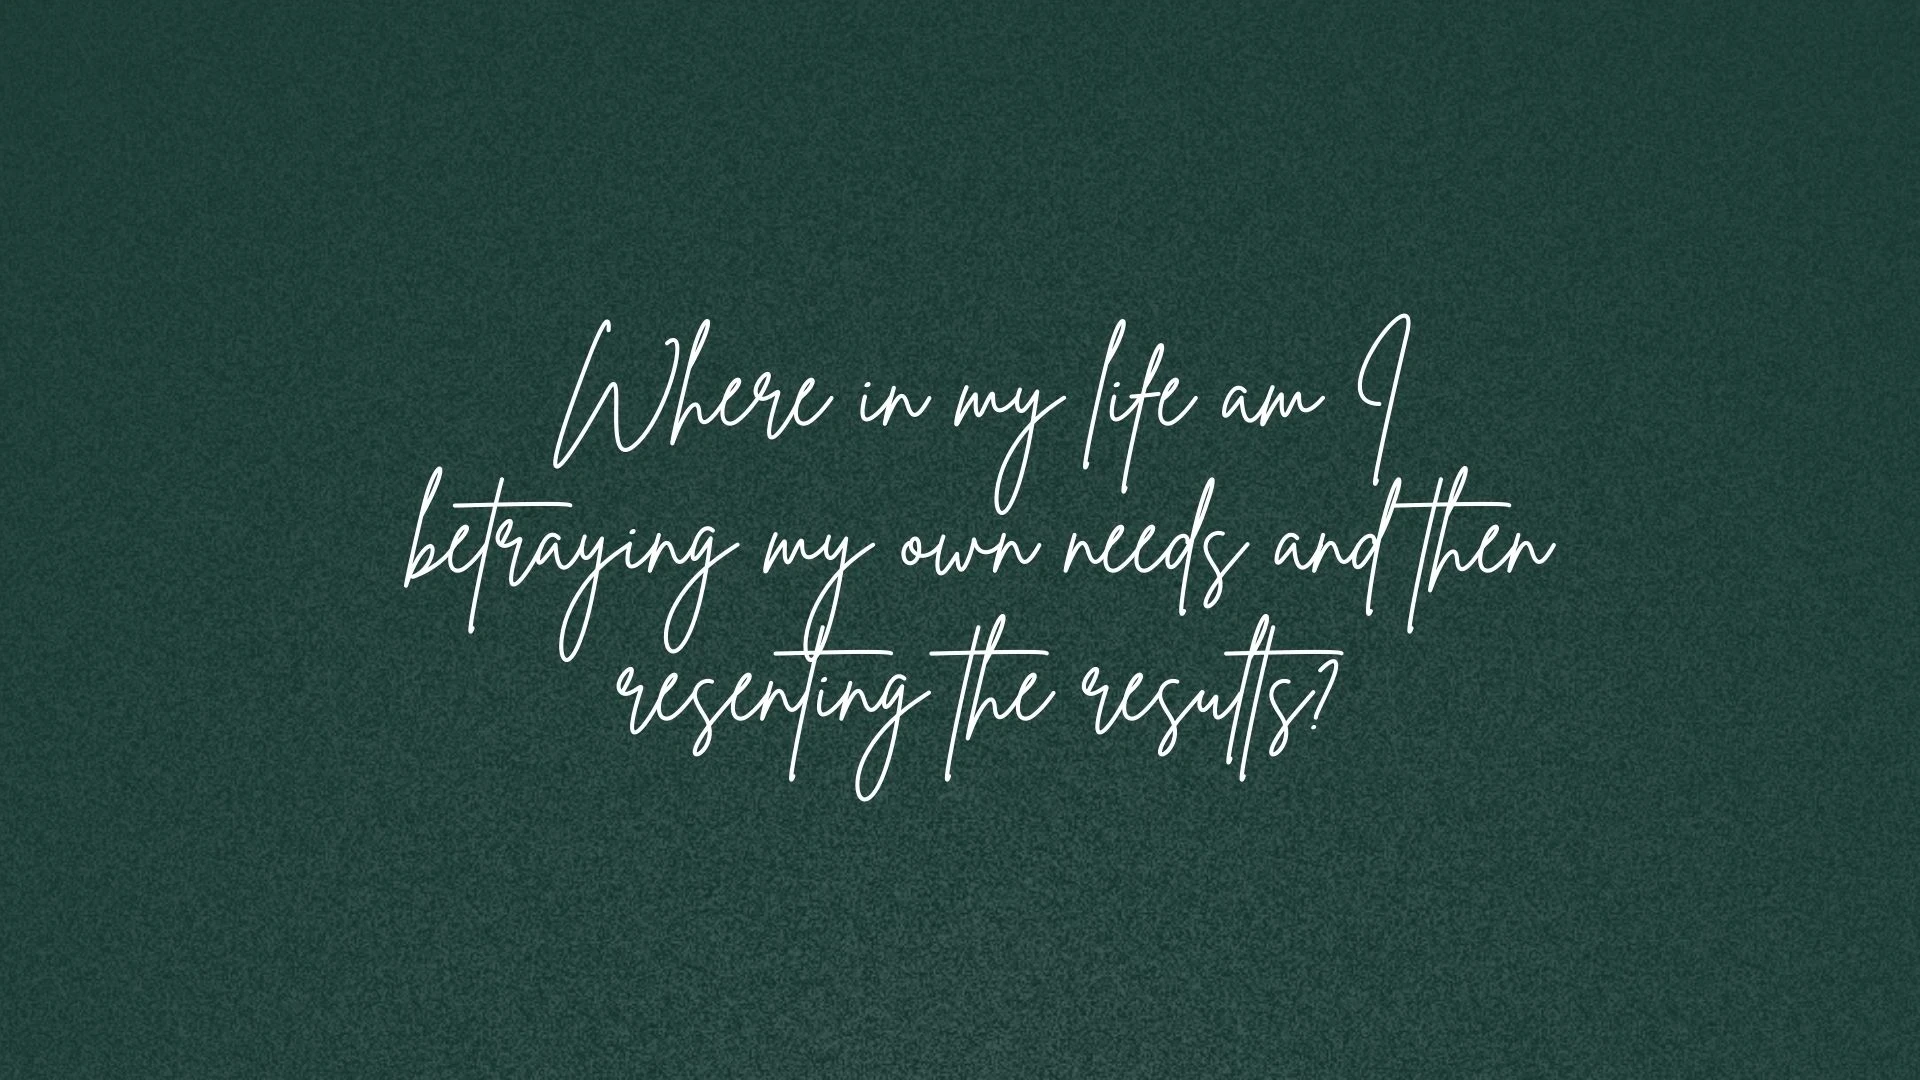 Where in my life am I
betraying my own needs and then
resenting the results?